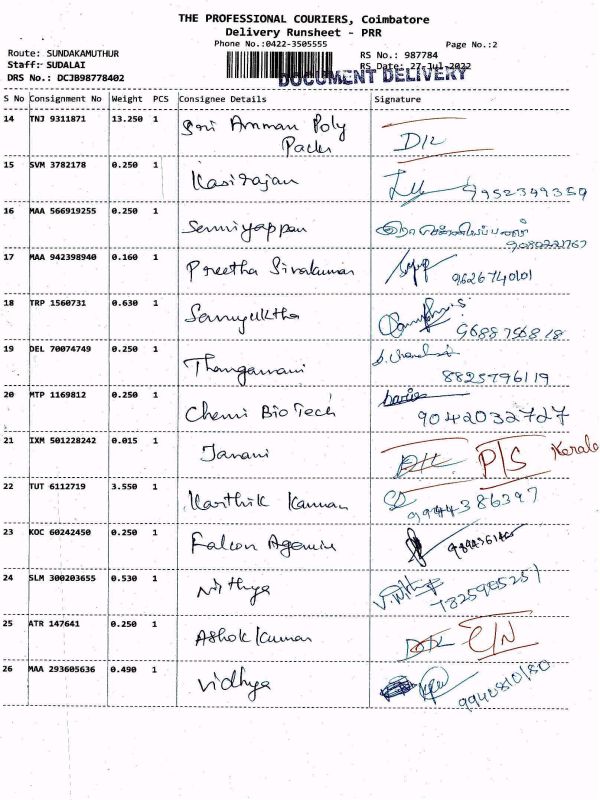 THE PROFESSIONAL COURIERS, Coimbatore
Delivery Runsheet - PRR
Phone No.:0422-3505555
Page No.:2
Route: SUNDAKAMUTHUR
RS No.: 987784
Staff: SUDALAI
RS Date: 27-Jul-2022
DRS No.: DCJB98778402
DOCUMENT DELIVERY
S No Consignment No Weight PCS Consignee Details Signature
14 TNJ 9311871 13.250 1 Sri Amman Poly
Packs
15 SVM 3782178 0.250 1 Kasirajan 9952349359
16 MAA 566919255 0.250 1 Senniyappan
17 MAA 942398940 0.160 1 Preetha Sivakumar 9626740101
18 TRP 1560731 0.630 1 Samyuktha 9688756818
19 DEL 70074749 0.250 1 Thangamani
8825796119
20 MTP 1169812 0.250 1 Chemi BioTech
9042032727
21 IXM 501228242 0.015 1 Janani P/S Kerala
22 TUT 6112719 3.550 1 Karthik Kannan 9944386397
23 KOC 60242450 0.250 1 Falcon
24 SLM 300203655 0.530 1 Nithya 7825985251
25 ATR 147641 0.250 1 Ashok Kumar C/N
26 MAA 293605636 0.490 1 Vidhya 9942810180